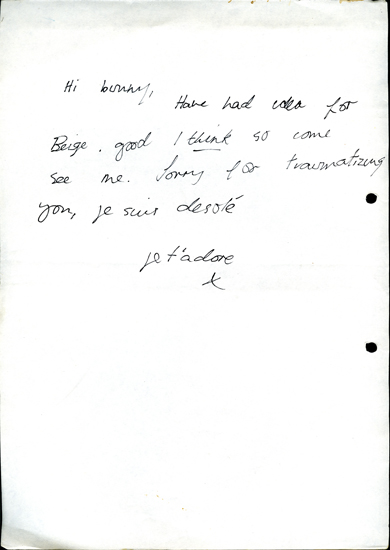 Hi bunny,
Have had idea for
Beige. good I think so come
see me. Sorry for traumatizing
you, je suis desolé
je t'adore
x